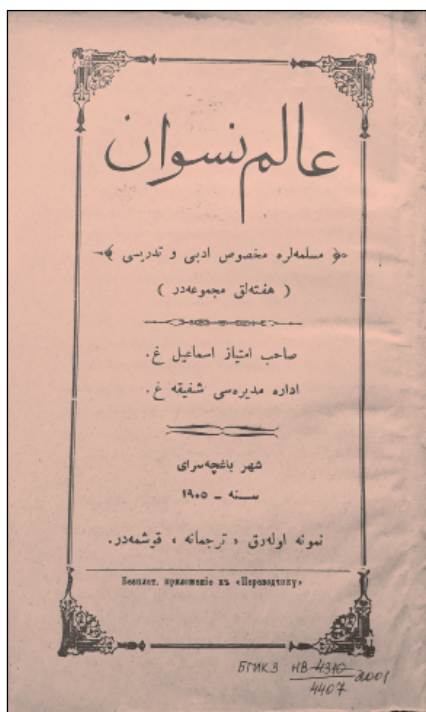 عالم نسوان
﴿ مسلمه‌لره مخصوص ادبی و تدریسی ﴾
( هفته‌لق مجموعه‌در )
صاحب امتیاز اسماعیل غ.
اداره مدیره‌سی شفیقه غ.
شهر باغچه‌سرای
سنه – ۱۹۰۵
نمونه اوله‌رق «ترجمانه» قوشمه‌در.
Безплат. приложеніе къ «Переводчику»
БГИКЗ НВ 4310 2001
4407